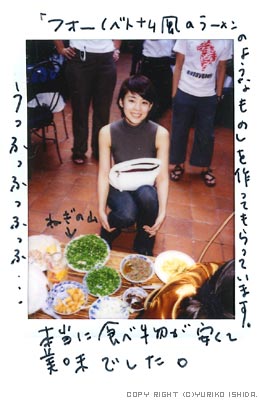 「フォー（ベトナム風のラーメン
のようなもの」を作ってもらっています。
うっふっふっふっふっふ…
ねぎの山
本当に食べ物が安くて
美味でした。
COPY RIGHT (C)YURIKO ISHIDA.